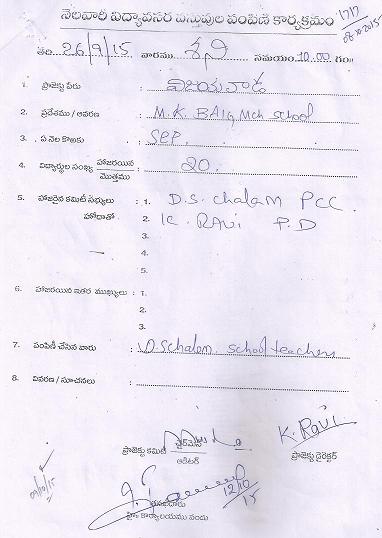 నెలవారీ విద్యావసర వస్తువుల పంపిణీ కార్యక్రమం
తేది 26/9/15 వారము శని సమయం 10.00 గం॥
1. ప్రాజెక్టు పేరు : విజయవాడ
2. ప్రదేశము / ఆవరణ : M.K. BAIG, Mch school
3. ఏ నెల కొఱకు : SEP.
4. విద్యార్థుల సంఖ్య హాజరయిన మొత్తము : 20.
5. హాజరైన కమిటీ సభ్యులు : 1. D.S. chalam PCC.
హోదాతో 2. K. RAVI P.D
3.
4.
5.
6. హాజరయిన ఇతర ముఖ్యులు : 1.
2.
3.
7. పంపిణీ చేసిన వారు : D.Schalam. school teachers
8. వివరణ / సూచనలు :
K. Ravi
ప్రాజెక్టు కమిటీ చైర్మన్
ఆడిటర్
ప్రాజెక్టు డైరెక్టర్
12/10
15